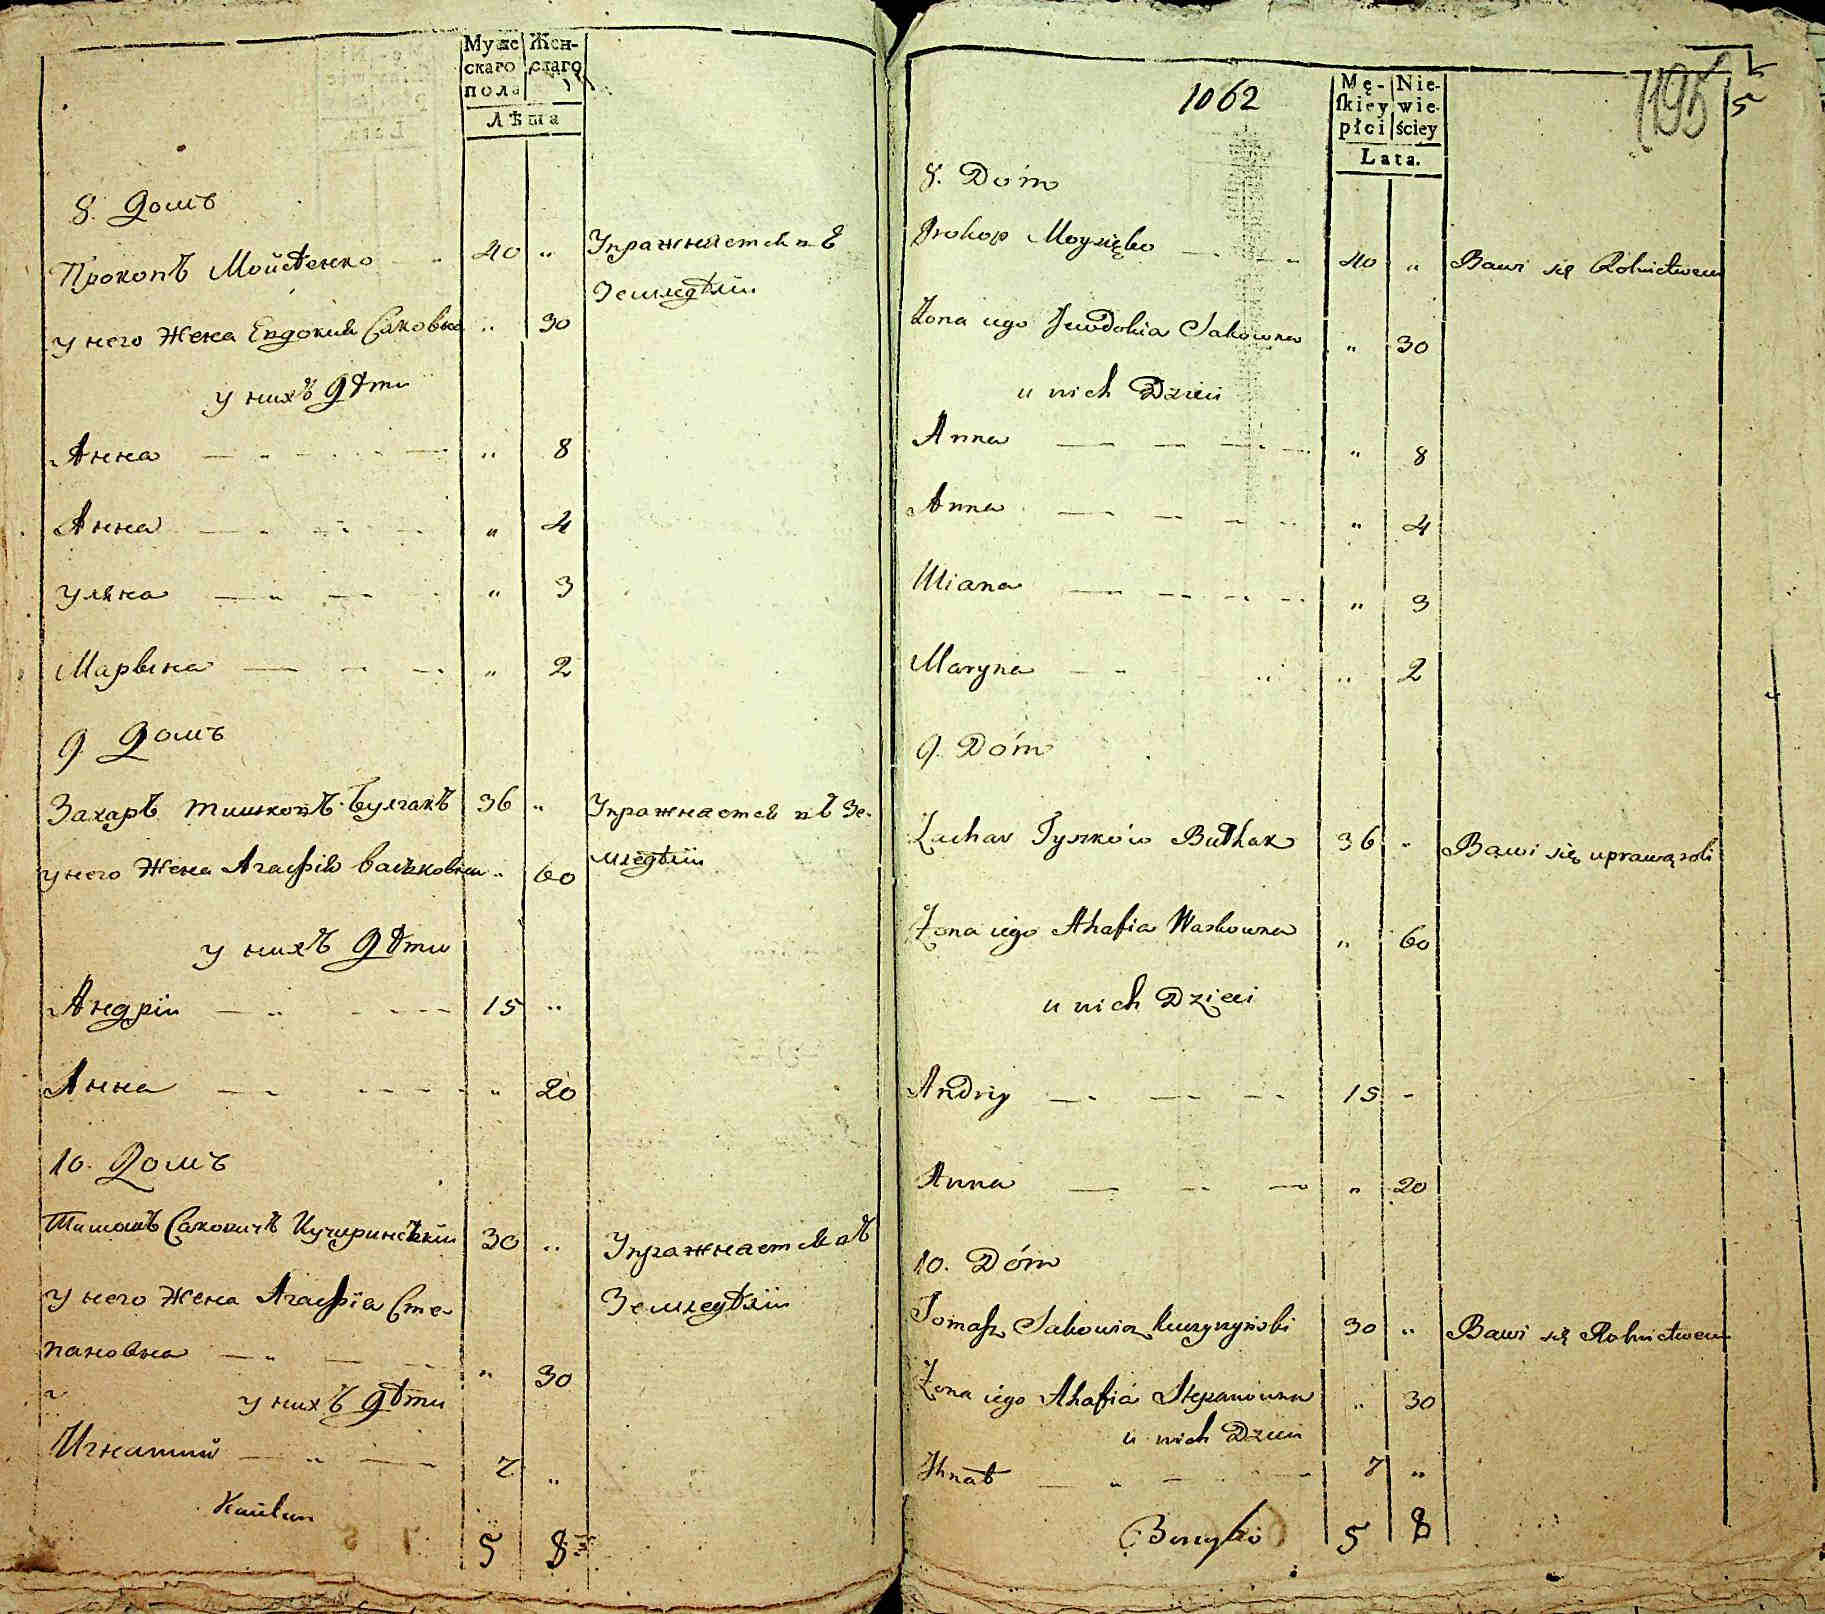 Муже Жен-
скаго скаго
пола
Лѣта
8. Домъ
Прокопъ Мойсѣенко 40 „ Упражняется въ
Земледѣліи
у него Жена Евдокия Саковна „ 30
у нихъ Дѣти
Анна „ 8
Анна „ 4
Уляна „ 3
Марына „ 2
9 Домъ
Захаръ Тишковъ Булгакъ 36 „ Упражнается въ Зе-
мледѣліи
у него Жена Агафія Васьковна „ 60
у нихъ Дѣти
Андріи 15 „
Анна „ 20
10. Домъ
Тимошъ Саковичъ 30 „ Упражнается въ
Земледѣліи
у него Жена Агафіа Сте-
пановна „ 30
у нихъ Дѣти
Игнатий 7 „
5 8
1062
1195
5
Mę- Nie-
ſkiey wie-
płci ściey
Lata.
8. Dóm
Prokop Moysięko 40 „ Bawi się Rolnictwem
Żona iego Jewdokia Sakowna „ 30
u nich Dzieci
Anna „ 8
Anna „ 4
Uliana „ 3
Maryna „ 2
9. Dóm
Zachar Tyszków Bułhak 36 „ Bawi się uprawą roli
Żona iego Ahafia Waskowna „ 60
u nich Dzieci
Andriy 15 „
Anna „ 20
10. Dóm
Tomasz Sakowicz 30 „ Bawi się Rolnictwem
Żona iego Ahafia Stepanowna „ 30
u nich Dzieci
Ihnat 7 „
5 8